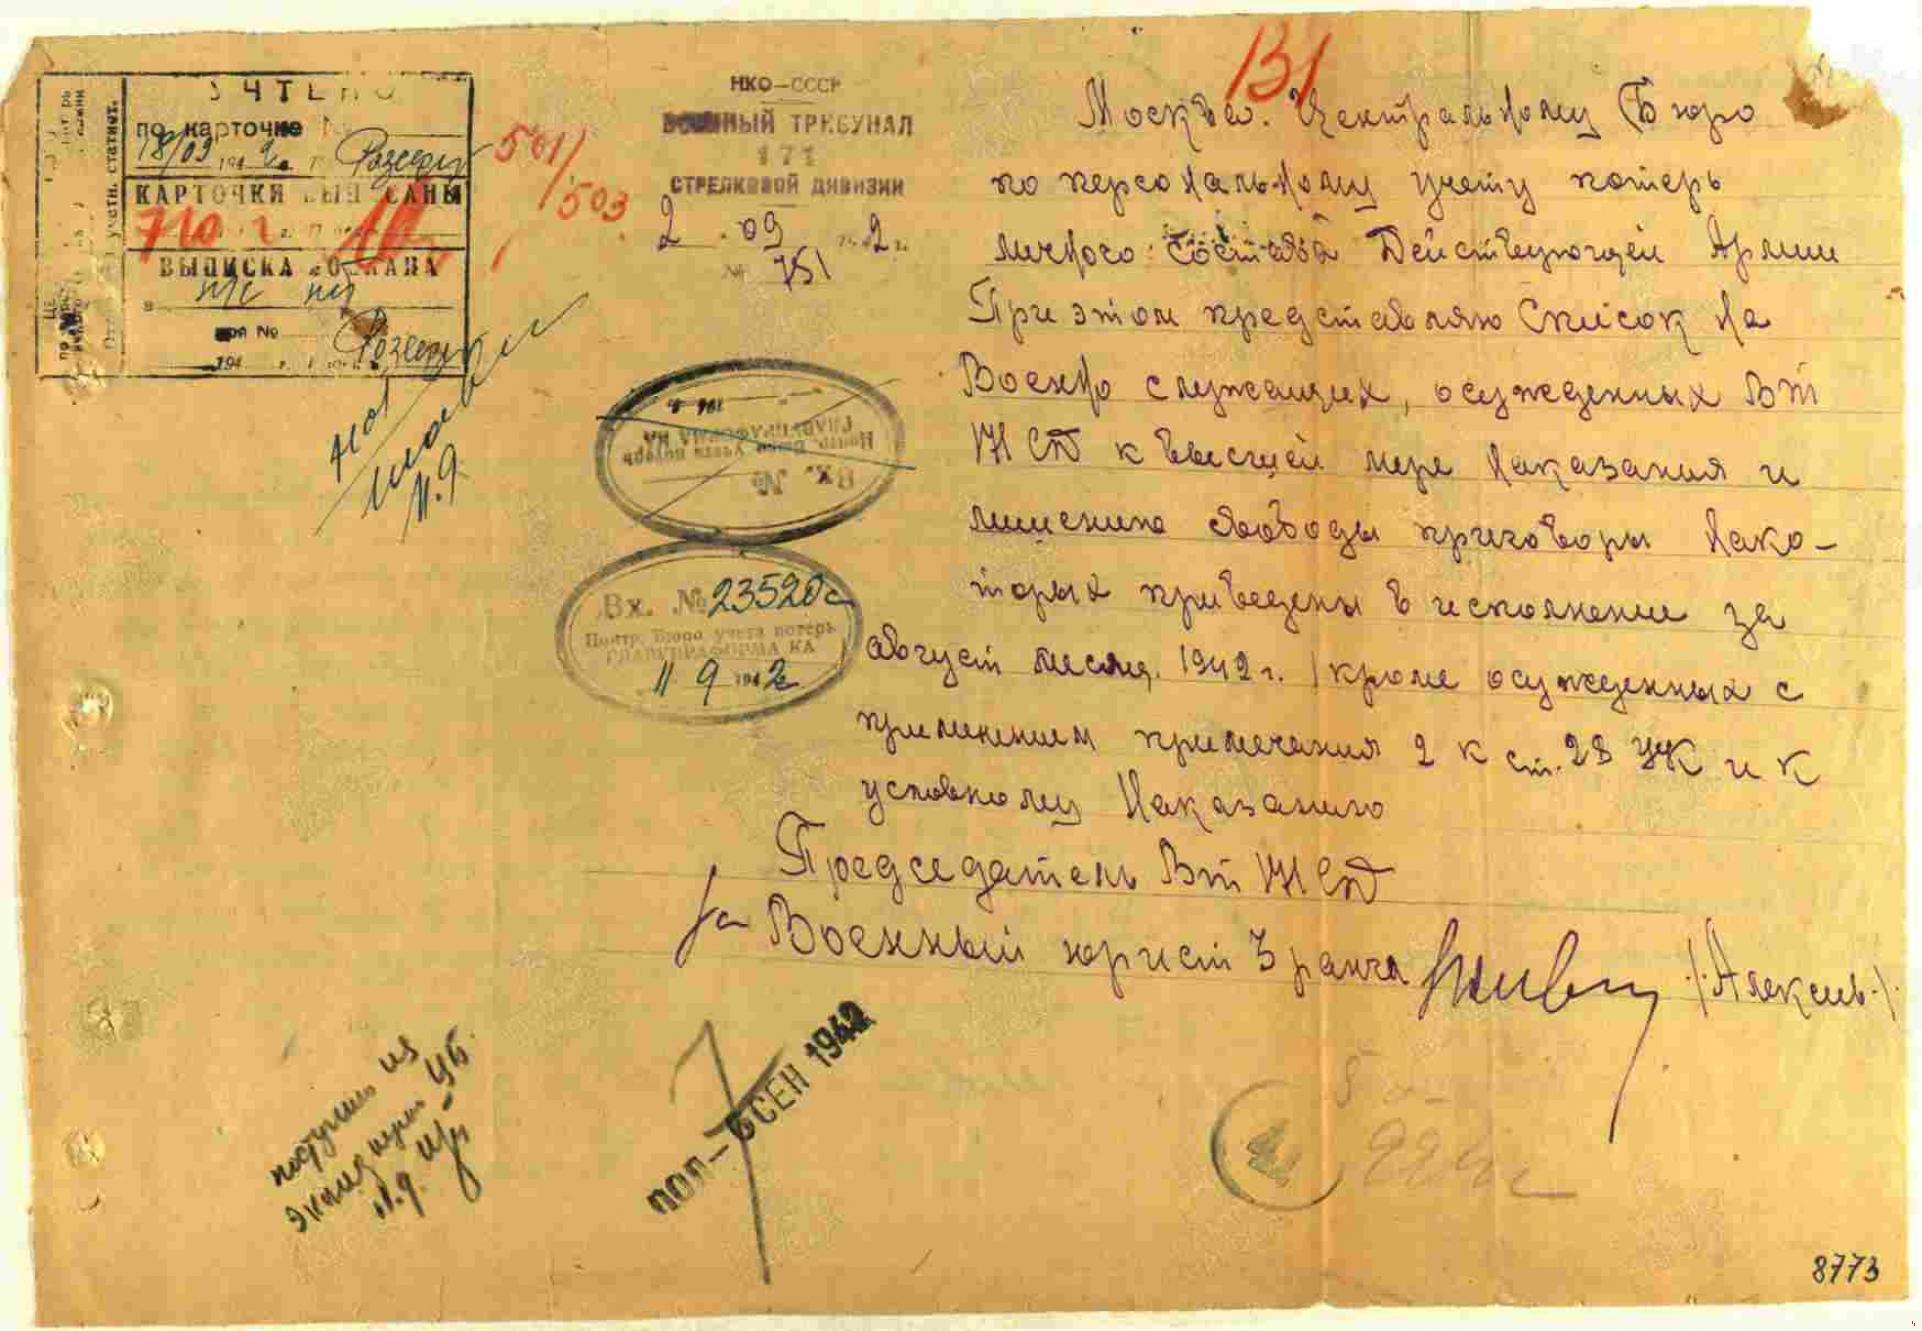 УЧТЕНО
по карточке №
18/09 1942г.
КАРТОЧКИ ВЫПИСАНЫ
ВЫПИСКА
при №
194 г.
501/503
НКО–СССР
ВОЕННЫЙ ТРИБУНАЛ
171
СТРЕЛКОВОЙ ДИВИЗИИ
2 . 09 1942 г.
№ 751
131
Москва. Центральному Бюро
по персональному учету потерь
личного состава Действующей Армии
При этом представляю список на
Военно служащих, осужденных ВТ
171 СД к высшей мере наказания и
лишению свободы приговоры нако-
торых приведены в исполнение за
август месяц. 1942 г. /кроме осужденных с
применением примечания 2 к ст. 28 УК и к
условному наказанию
Председатель ВТ 171 СД
за Военный юрист 3 ранга /Алексеев/
Вх. №
Центр. Бюро учета потерь
ГЛАВУПРАФОРМА КА
194 г.
Вх. № 23520с
Центр. Бюро учета потерь
ГЛАВУПРАФОРМА КА
11 9 1942
11.9
поступило из
экспед через УБ.
11.9.
ПОЛ– 6 СЕН 1942
7
8773